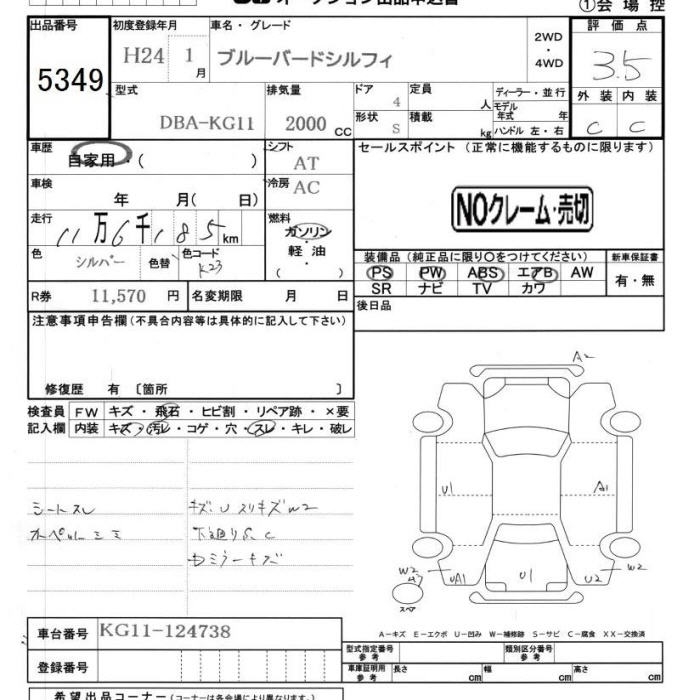 オークション出品申込書
①会場控
出品番号
5349
初度登録年月
H24 1月
車名・グレード
ブルーバードシルフィ
2WD
・
4WD
評価点
3.5
外装 内装
C C
型式
DBA-KG11
排気量
2000 CC
ドア
4
定員
人
形状
S
積載
kg
ディーラー・並行
モデル年式 年
ハンドル 左・右
車歴
自家用・( )
シフト
AT
車検
年 月( 日)
冷房
AC
走行
11万6千185km
燃料
ガソリン
・
軽油
( )
色
シルバー
色替
色コード
K23
R券 11,570 円
名変期限 月 日
セールスポイント (正常に機能するものに限ります)
NOクレーム・売切
装備品(純正品に限り○をつけてください)
PS PW ABS エアB AW
SR ナビ TV カワ
新車保証書
有・無
後日品
注意事項申告欄(不具合内容等は具体的に記入して下さい)
修復歴 有 〔箇所 〕
検査員記入欄
FW キズ・飛石・ヒビ割・リペア跡・×要
内装 キズ・汚レ・コゲ・穴・スレ・キレ・破レ
シートスレ
キズ・U スリキズW2
下廻りS、C
ミラーキズ
A2
U1
A1
W2
UA1
U1
U2
W2
スペア
A-キズ E-エクボ U-凹み W-補修跡 S-サビ C-腐食 XX-交換済
車台番号 KG11-124738
登録番号
型式指定番号
参考
類別区分番号
参考
車庫証明用
参考
長さ cm 幅 cm 高さ cm
希望出品コーナー(コーナーは各会場により異なります)